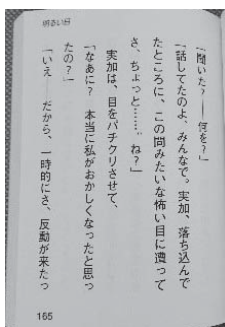 明るい日
「聞いた?——何を?」
「話してたのよ、みんなで。実加、落ち込んで
たところに、この間みたいな怖い目に遭って
さ、ちょっと……、ね?」
実加は、目をパチクリさせて、
「なあに? 本当に私がおかしくなったと思っ
たの?」
「いえ——だから、一時的にさ、反動が来たっ
165